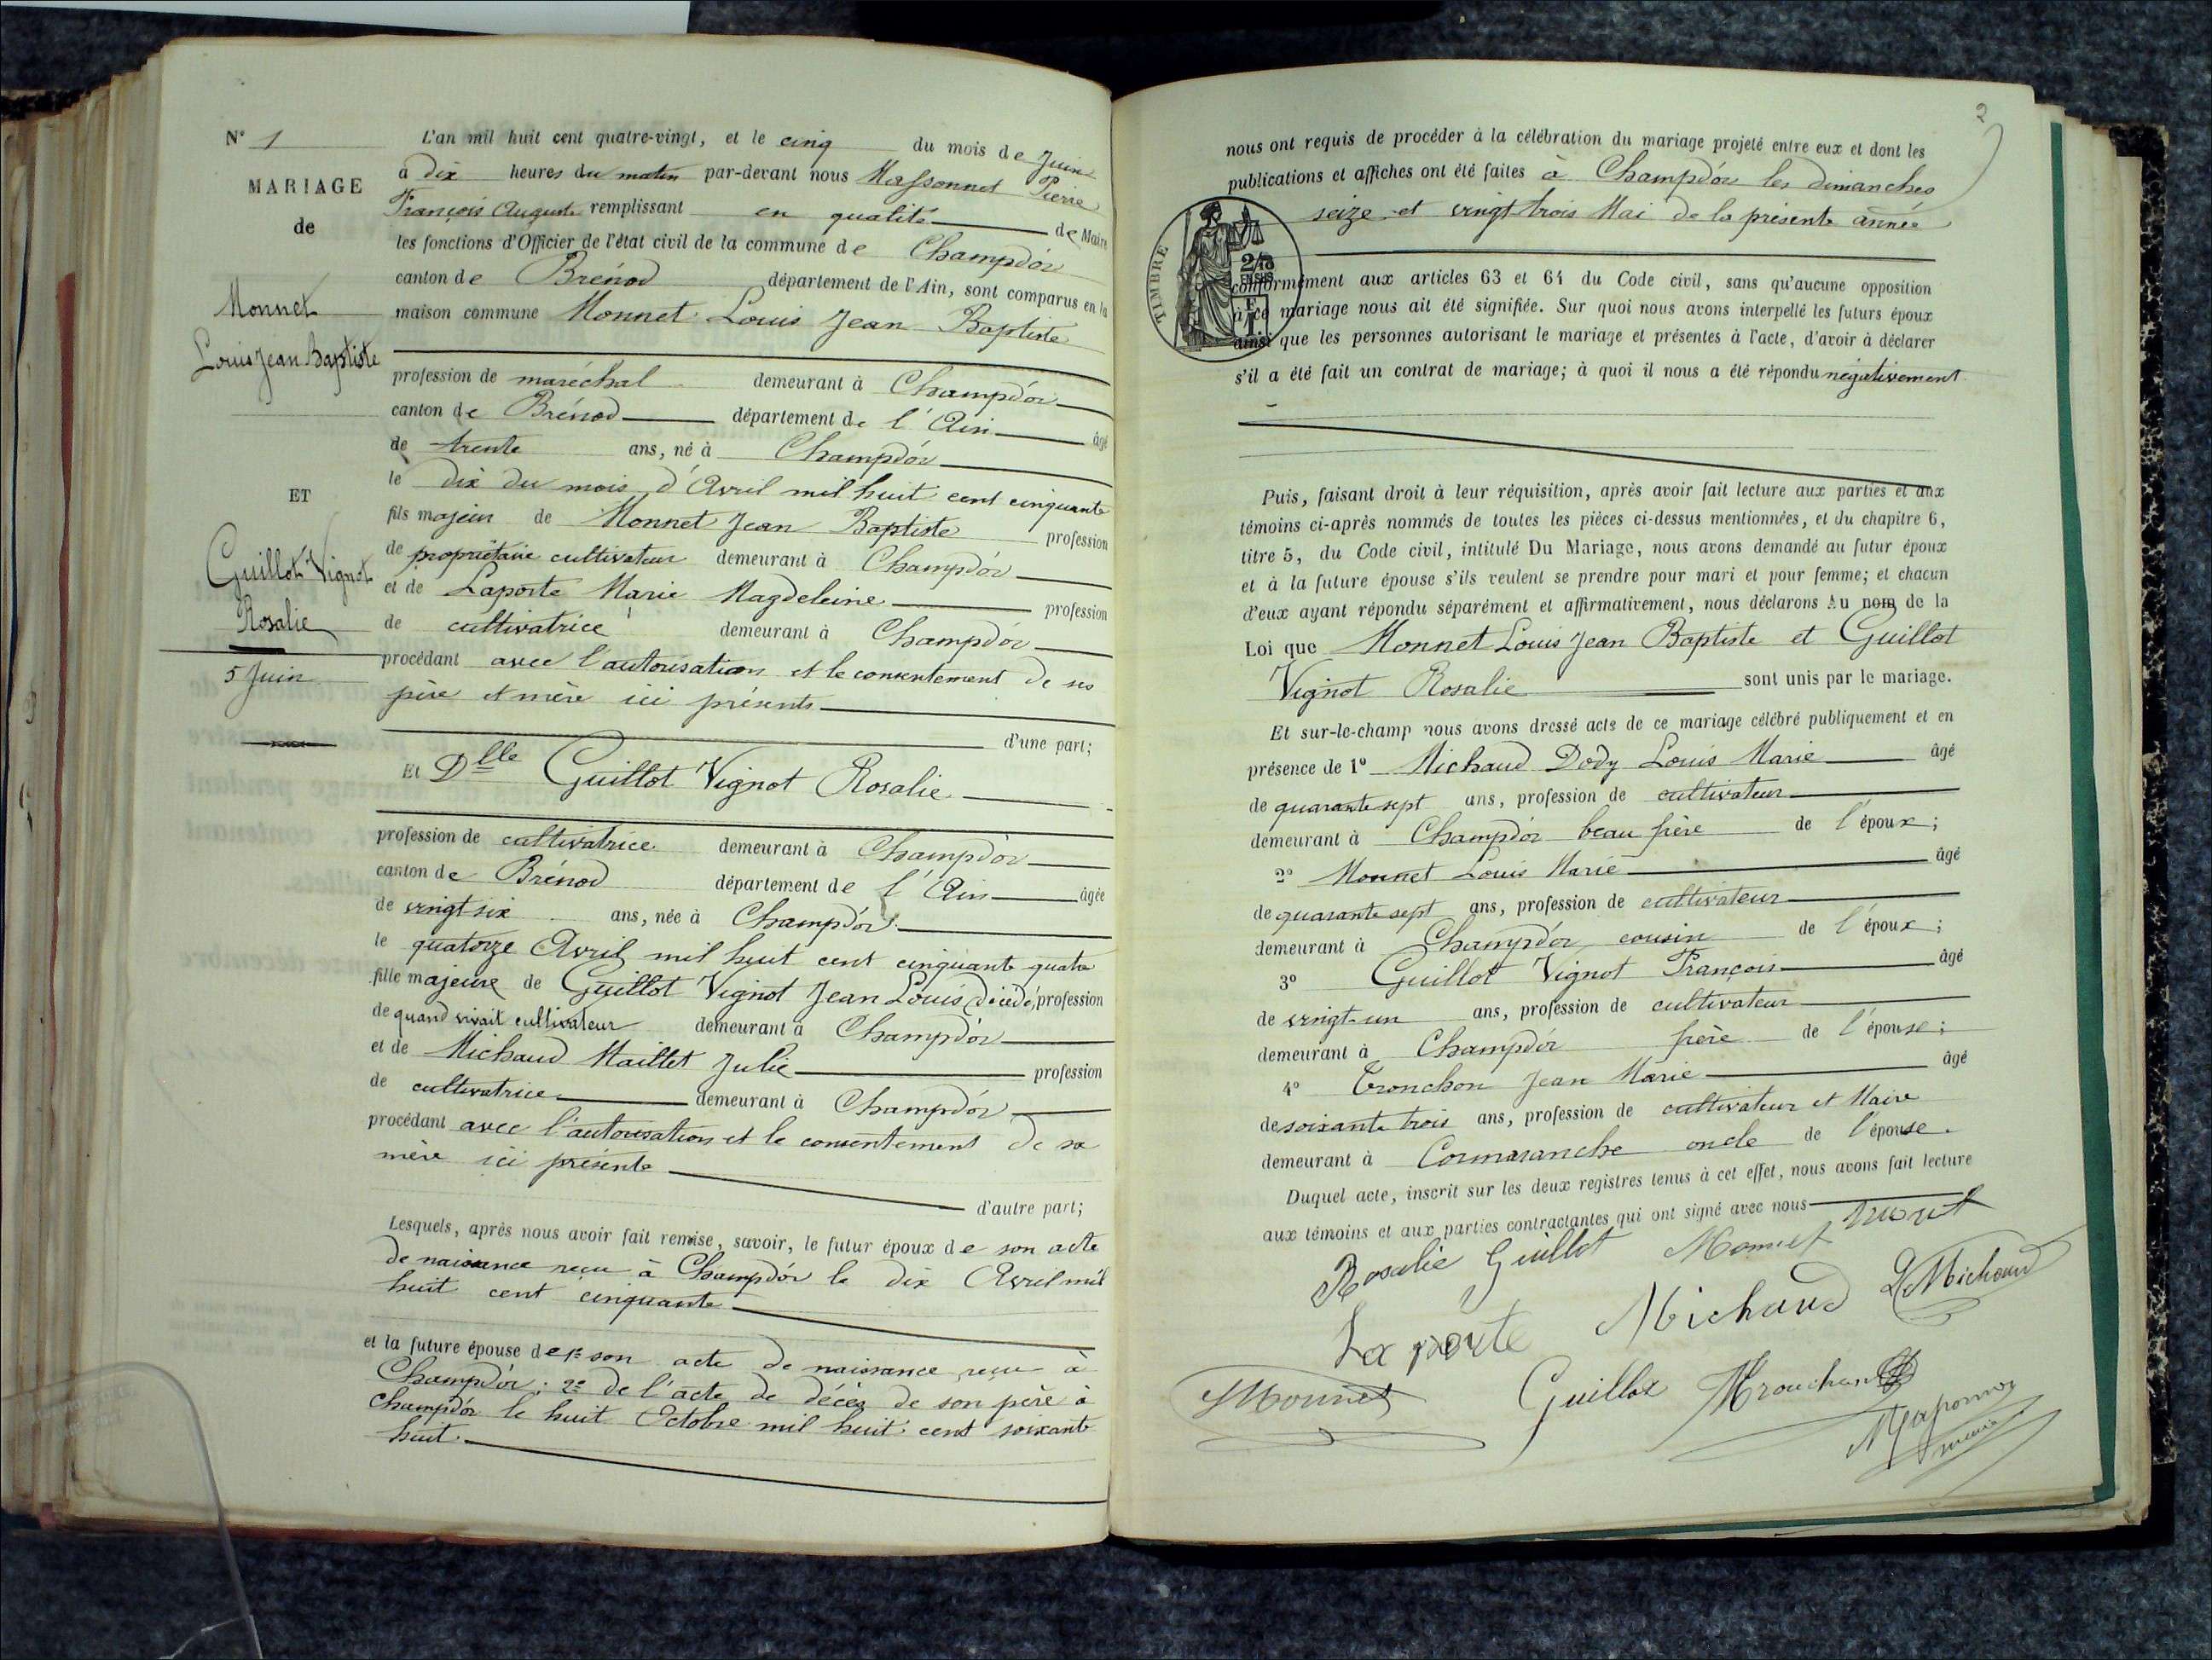 N° 1
MARIAGE
de
Monnet
Louis Jean Baptiste
ET
Guillot Vignot
Rosalie
5 Juin
L'an mil huit cent quatre-vingt, et le cinq du mois de Juin
à dix heures du matin par-devant nous Massonnet Pierre
François Auguste remplissant en qualité de Maire
les fonctions d'Officier de l'état civil de la commune de Champdôr
canton de Brénod département de l'Ain, sont comparus en la
maison commune Monnet Louis Jean Baptiste
profession de maréchal demeurant à Champdôr
canton de Brénod département de l'Ain âgé
de trente ans, né à Champdôr
le dix du mois d'Avril mil huit cent cinquante
fils majeur de Monnet Jean Baptiste profession
de propriétaire cultivateur demeurant à Champdôr
et de Laporte Marie Magdeleine profession
de cultivatrice demeurant à Champdôr
procédant avec l'autorisation et le consentement de ses
père et mère ici présents
d'une part;
Et Dlle Guillot Vignot Rosalie
profession de cultivatrice demeurant à Champdôr
canton de Brénod département de l'Ain âgée
de vingt six ans, née à Champdôr
le quatorze Avril mil huit cent cinquante quatre
fille majeure de Guillot Vignot Jean Louis décédé, profession
de quand vivait cultivateur demeurant à Champdôr
et de Michaud Maillet Julie profession
de cultivatrice demeurant à Champdôr
procédant avec l'autorisation et le consentement de sa
mère ici présente
d'autre part;
Lesquels, après nous avoir fait remise, savoir, le futur époux de son acte
de naissance reçu à Champdôr le dix Avril mil
huit cent cinquante
et la future épouse de 1° son acte de naissance reçu à
Champdôr; 2° de l'acte de décès de son père à
Champdôr le huit Octobre mil huit cent soixante
huit.
2
nous ont requis de procéder à la célébration du mariage projeté entre eux et dont les
publications et affiches ont été faites à Champdôr les dimanches
seize et vingt trois Mai de la présente année
TIMBRE
conformément aux articles 63 et 64 du Code civil, sans qu'aucune opposition
à ce mariage nous ait été signifiée. Sur quoi nous avons interpellé les futurs époux
ainsi que les personnes autorisant le mariage et présentes à l'acte, d'avoir à déclarer
s'il a été fait un contrat de mariage; à quoi il nous a été répondu négativement
Puis, faisant droit à leur réquisition, après avoir fait lecture aux parties et aux
témoins ci-après nommés de toutes les pièces ci-dessus mentionnées, et du chapitre 6,
titre 5, du Code civil, intitulé Du Mariage, nous avons demandé au futur époux
et à la future épouse s'ils veulent se prendre pour mari et pour femme; et chacun
d'eux ayant répondu séparément et affirmativement, nous déclarons Au nom de la
Loi que Monnet Louis Jean Baptiste et Guillot
Vignot Rosalie sont unis par le mariage.
Et sur-le-champ nous avons dressé acte de ce mariage célébré publiquement et en
présence de 1° Michaud Dody Louis Marie âgé
de quarante sept ans, profession de cultivateur
demeurant à Champdôr beau frère de l'époux;
2° Monnet Louis Marie âgé
de quarante sept ans, profession de cultivateur
demeurant à Champdôr cousin de l'époux;
3° Guillot Vignot François âgé
de vingt-un ans, profession de cultivateur
demeurant à Champdôr frère de l'épouse;
4° Tronchon Jean Marie âgé
de soixante trois ans, profession de cultivateur et Maire
demeurant à Cormaranche oncle de l'épouse.
Duquel acte, inscrit sur les deux registres tenus à cet effet, nous avons fait lecture
aux témoins et aux parties contractantes qui ont signé avec nous
Rosalie Guillot Monnet
La porte Michaud L Michaud
Monnet Guillot Tronchon
maire